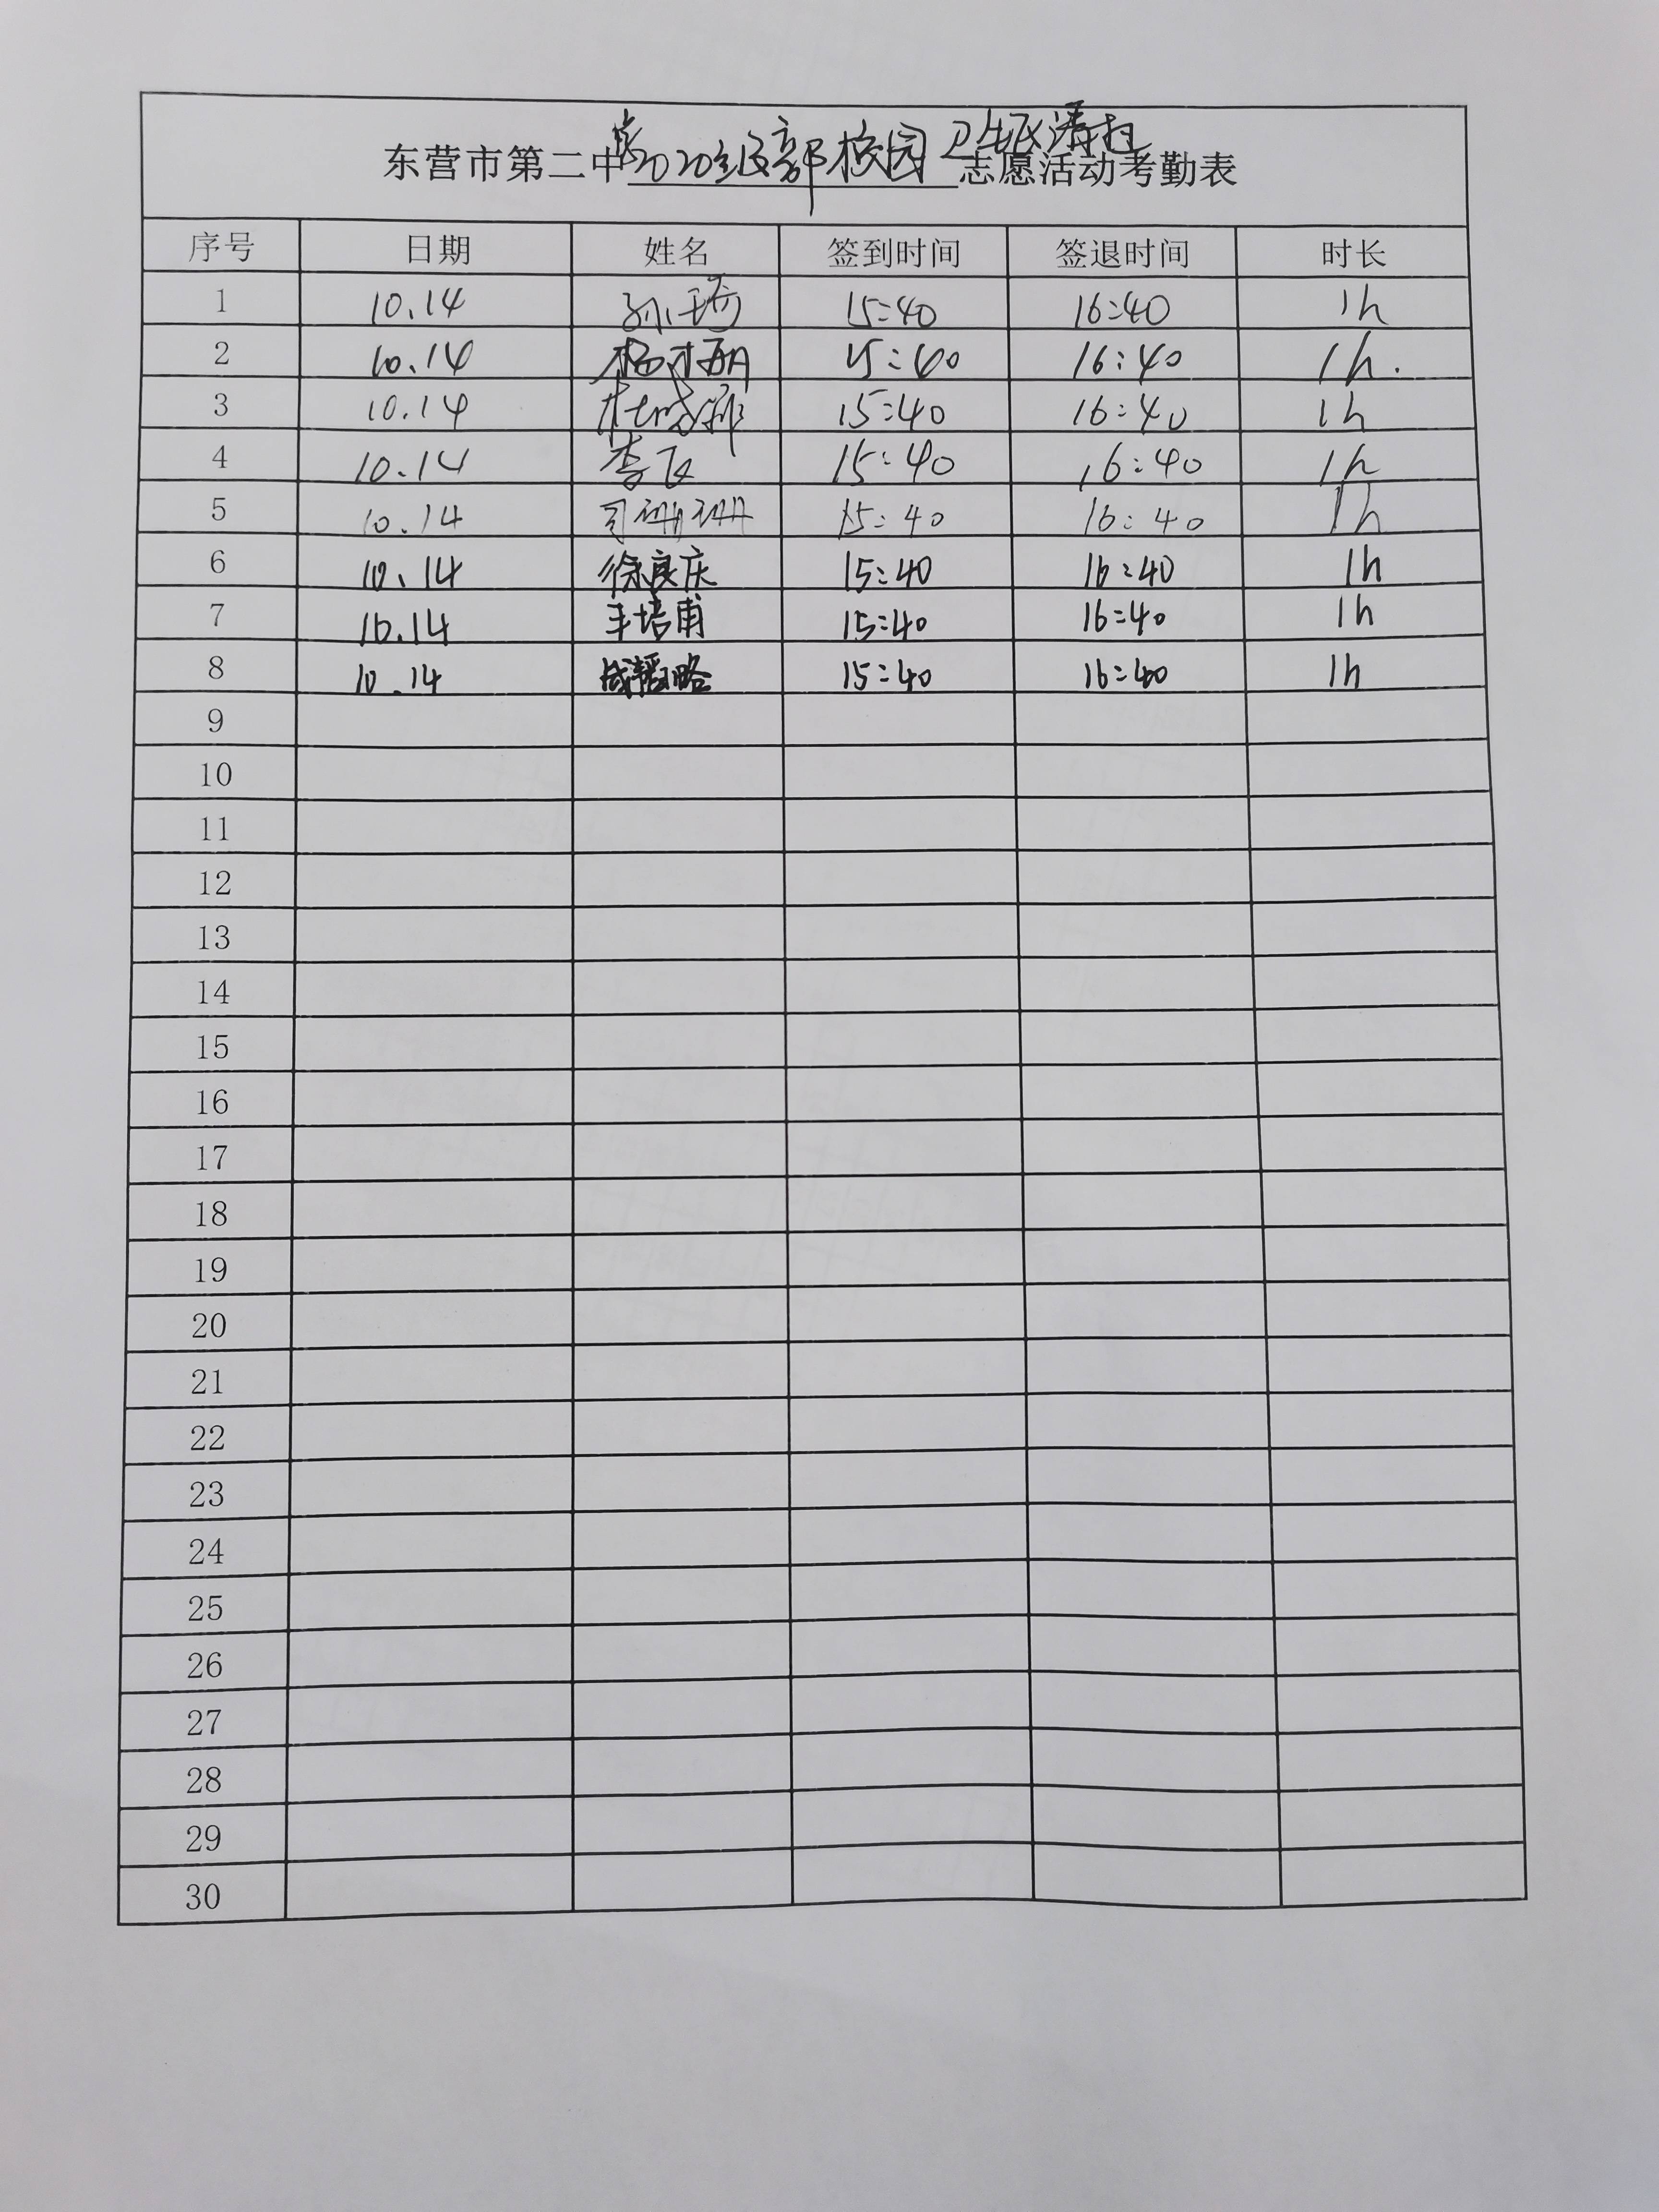 东营市第二中学2020级部校园卫生区清扫志愿活动考勤表
序号 日期 姓名 签到时间 签退时间 时长
1 10.14 孙琦 15:40 16:40 1h
2 10.14 15:40 16:40 1h.
3 10.14 15:40 16:40 1h
4 10.14 李飞 15:40 16:40 1h
5 10.14 司珊珊 15:40 16:40 1h
6 10.14 徐良庆 15:40 16:40 1h
7 10.14 王培甫 15:40 16:40 1h
8 10.14 15:40 16:40 1h
9
10
11
12
13
14
15
16
17
18
19
20
21
22
23
24
25
26
27
28
29
30